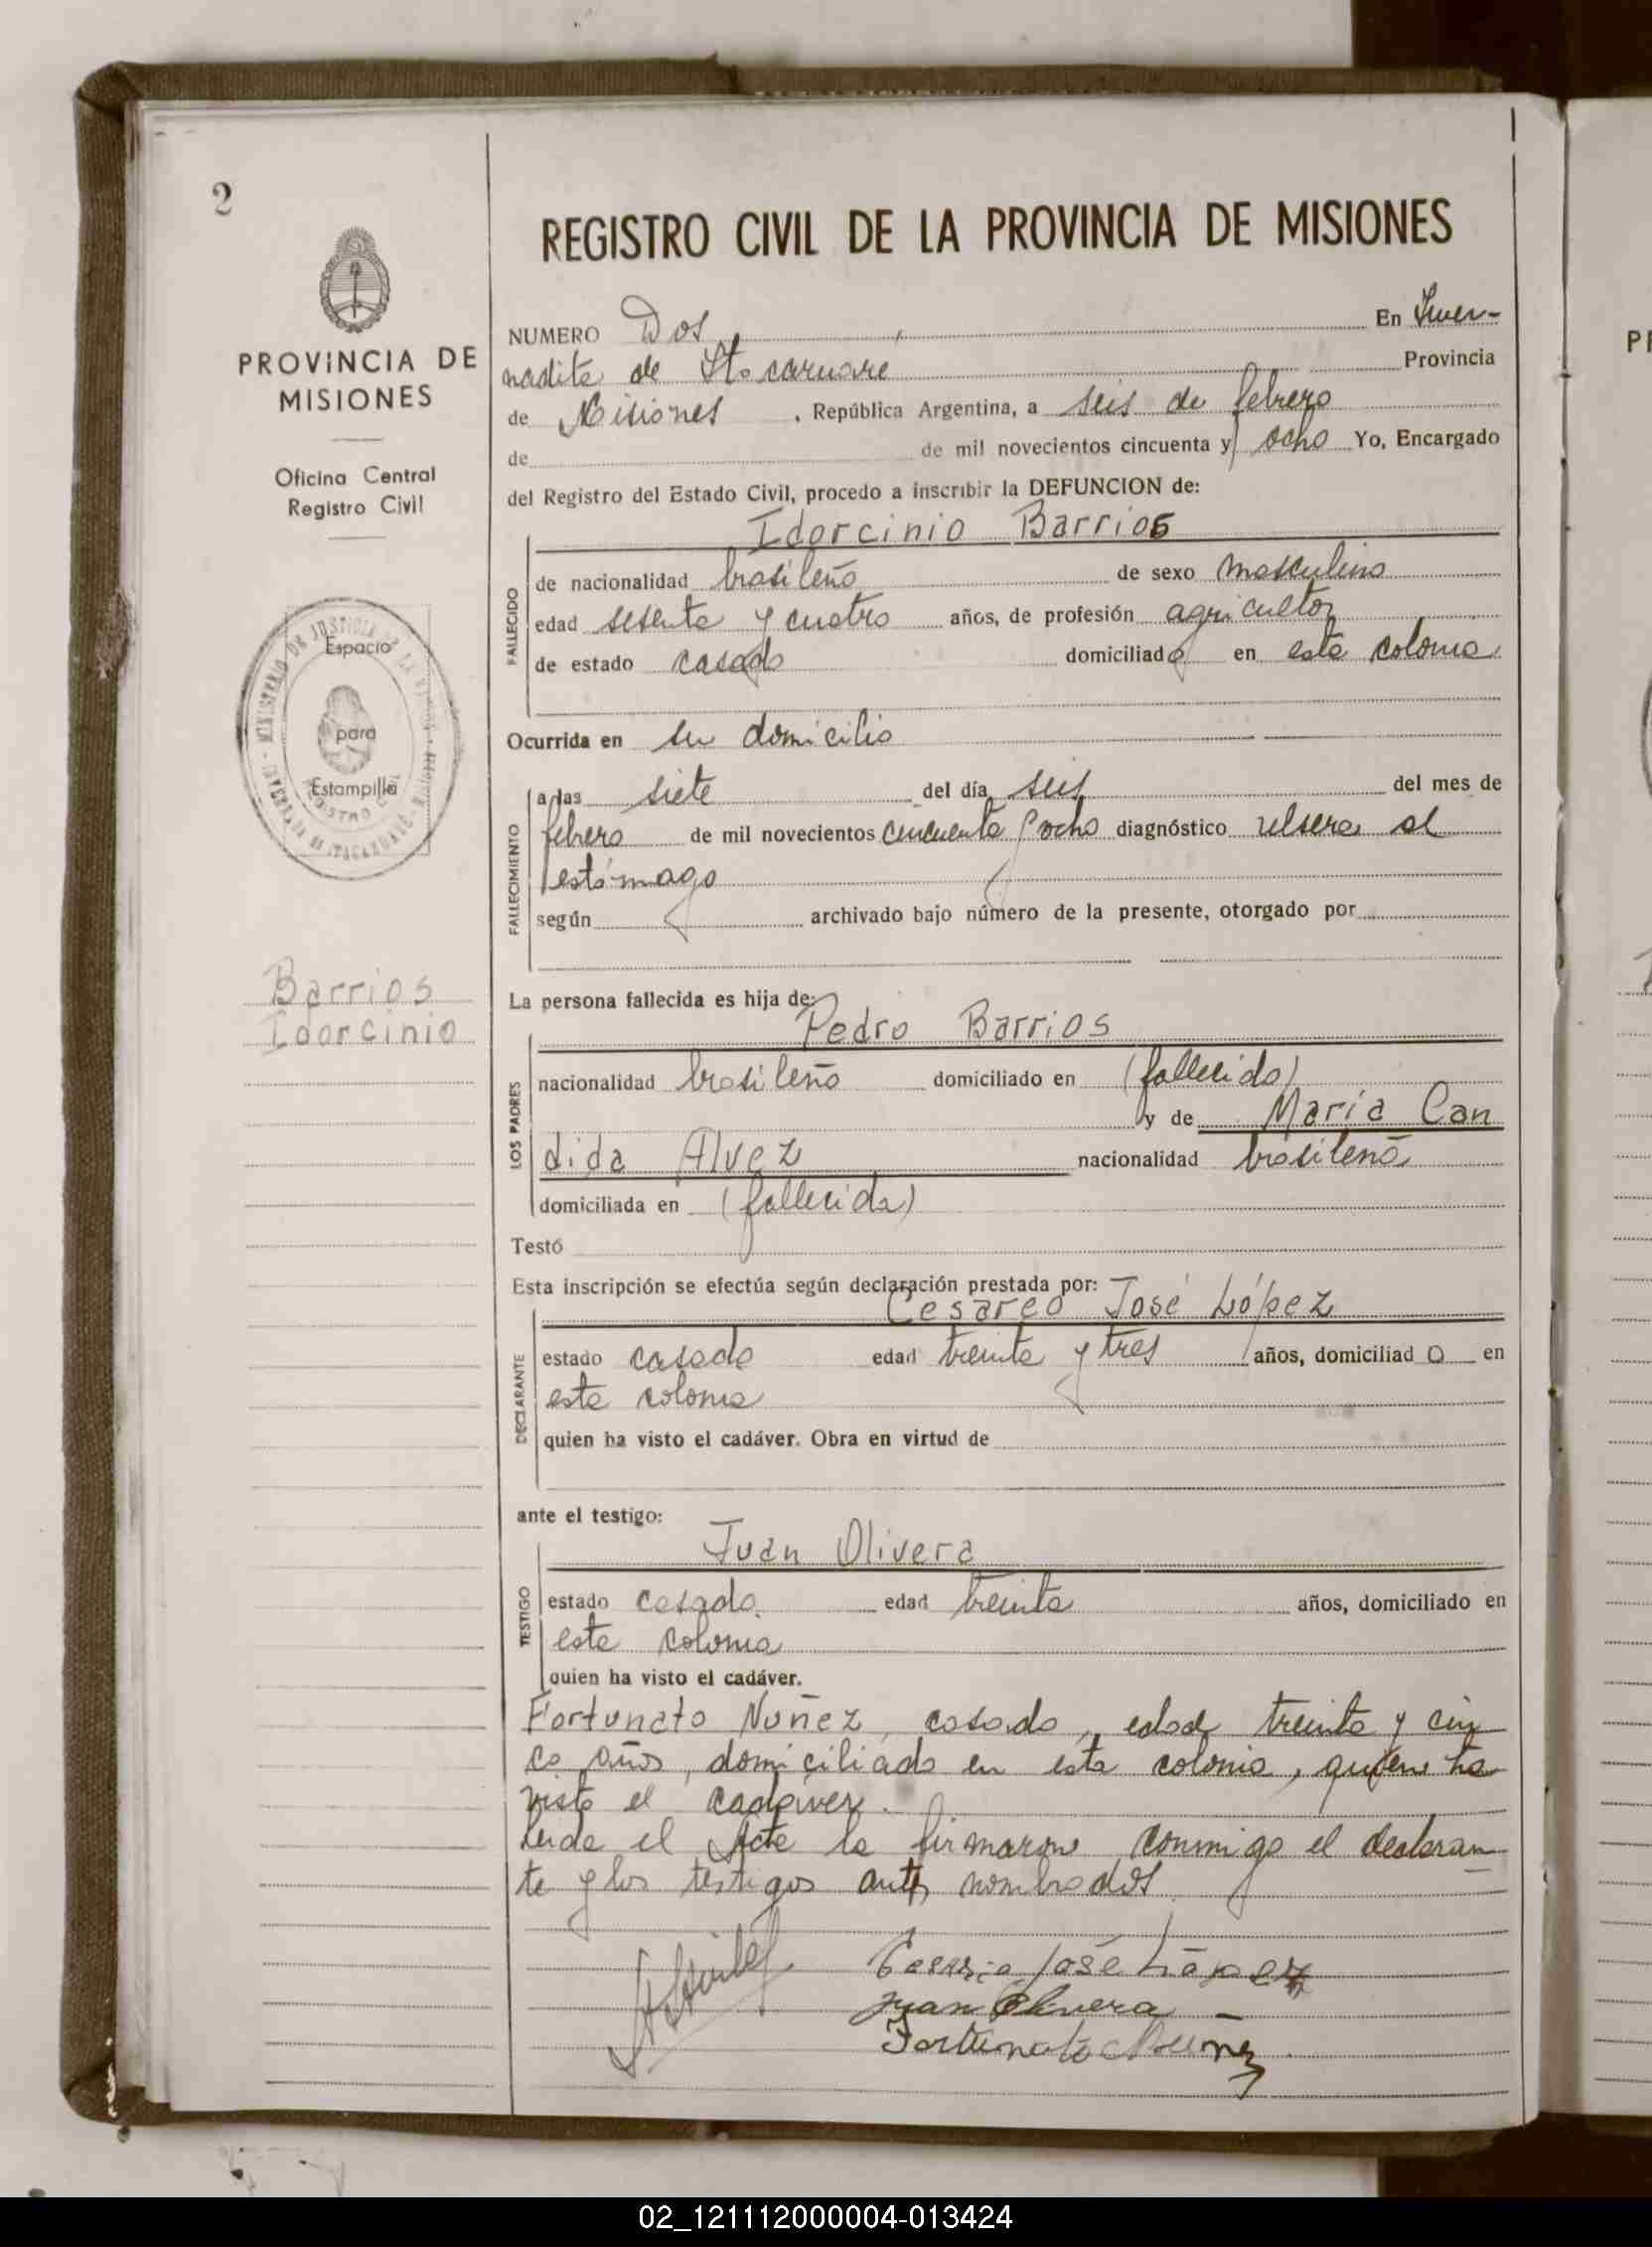 2
PROVINCIA DE
MISIONES
Oficina Central
Registro Civil
Espacio
para
Estampilla
Barrios
Idorcinio
REGISTRO CIVIL DE LA PROVINCIA DE MISIONES
NUMERO Dos En Inver-
nadita de Itacaruare Provincia
de Misiones , República Argentina, a seis de febrero
de de mil novecientos cincuenta y ocho Yo, Encargado
del Registro del Estado Civil, procedo a inscribir la DEFUNCION de:
Idorcinio Barrios
FALLECIDO
de nacionalidad brasileño de sexo masculino
edad sesenta y cuatro años, de profesión agricultor
de estado casado domiciliado en esta colonia
Ocurrida en su domicilio
FALLECIMIENTO
a las siete del día seis del mes de
febrero de mil novecientos cincuenta y ocho diagnóstico ulsera al
estómago
según archivado bajo número de la presente, otorgado por
La persona fallecida es hija de:
Pedro Barrios
LOS PADRES
nacionalidad brasileño domiciliado en (fallecido)
y de María Can
dida Alvez nacionalidad brasileña
domiciliada en (fallecida)
Testó
Esta inscripción se efectúa según declaración prestada por:
Cesareo José López
DECLARANTE
estado casado edad treinta y tres años, domiciliado en
esta colonia
quien ha visto el cadáver. Obra en virtud de
ante el testigo:
Juan Olivera
TESTIGO
estado casado edad treinta años, domiciliado en
esta colonia
quien ha visto el cadáver.
Fortunato Nuñez, casado, edad treinta y cin
co años, domiciliado en esta colonia, quien ha
visto el cadáver.
Leida el Acta la firmaron conmigo el declaran
te y los testigos antes nombrados
José López
Juan Olivera
Fortunato Nuñez
02_121112000004-013424